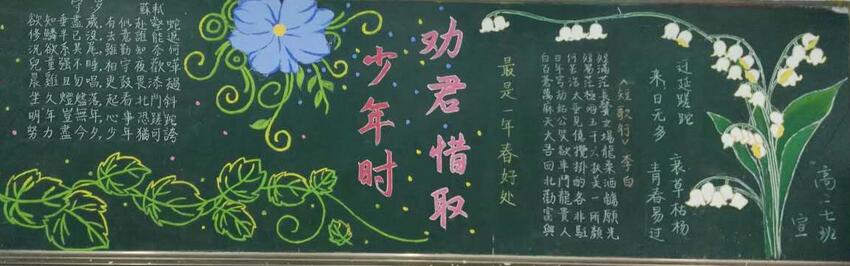 守岁
苏轼
欲知垂盡歲有似赴壑蛇
修鱗半已沒去意誰能遮
況欲系其尾雖勤知奈何
兒童强不睡相守夜歡嘩
晨雞且勿唱更鼓畏添撾
生久燈燼落起看北鬥斜
明年豈無年心事恐蹉跎
努力盡今夕少年猶可誇
劝君惜取
少年时
最是一年春好处
《短歌行》李白
白日何短短
百年苦易满
苍穹浩茫茫
万劫太极长
麻姑垂两鬓
一半已成霜
天公见玉女
大笑亿千场
吾欲揽六龙
回车挂扶桑
北斗酌美酒
劝龙各一觞
富贵非所愿
與人驻颜光
迁延蹉跎
来日无多
衰草枯杨
青春易过
高二七班
宣